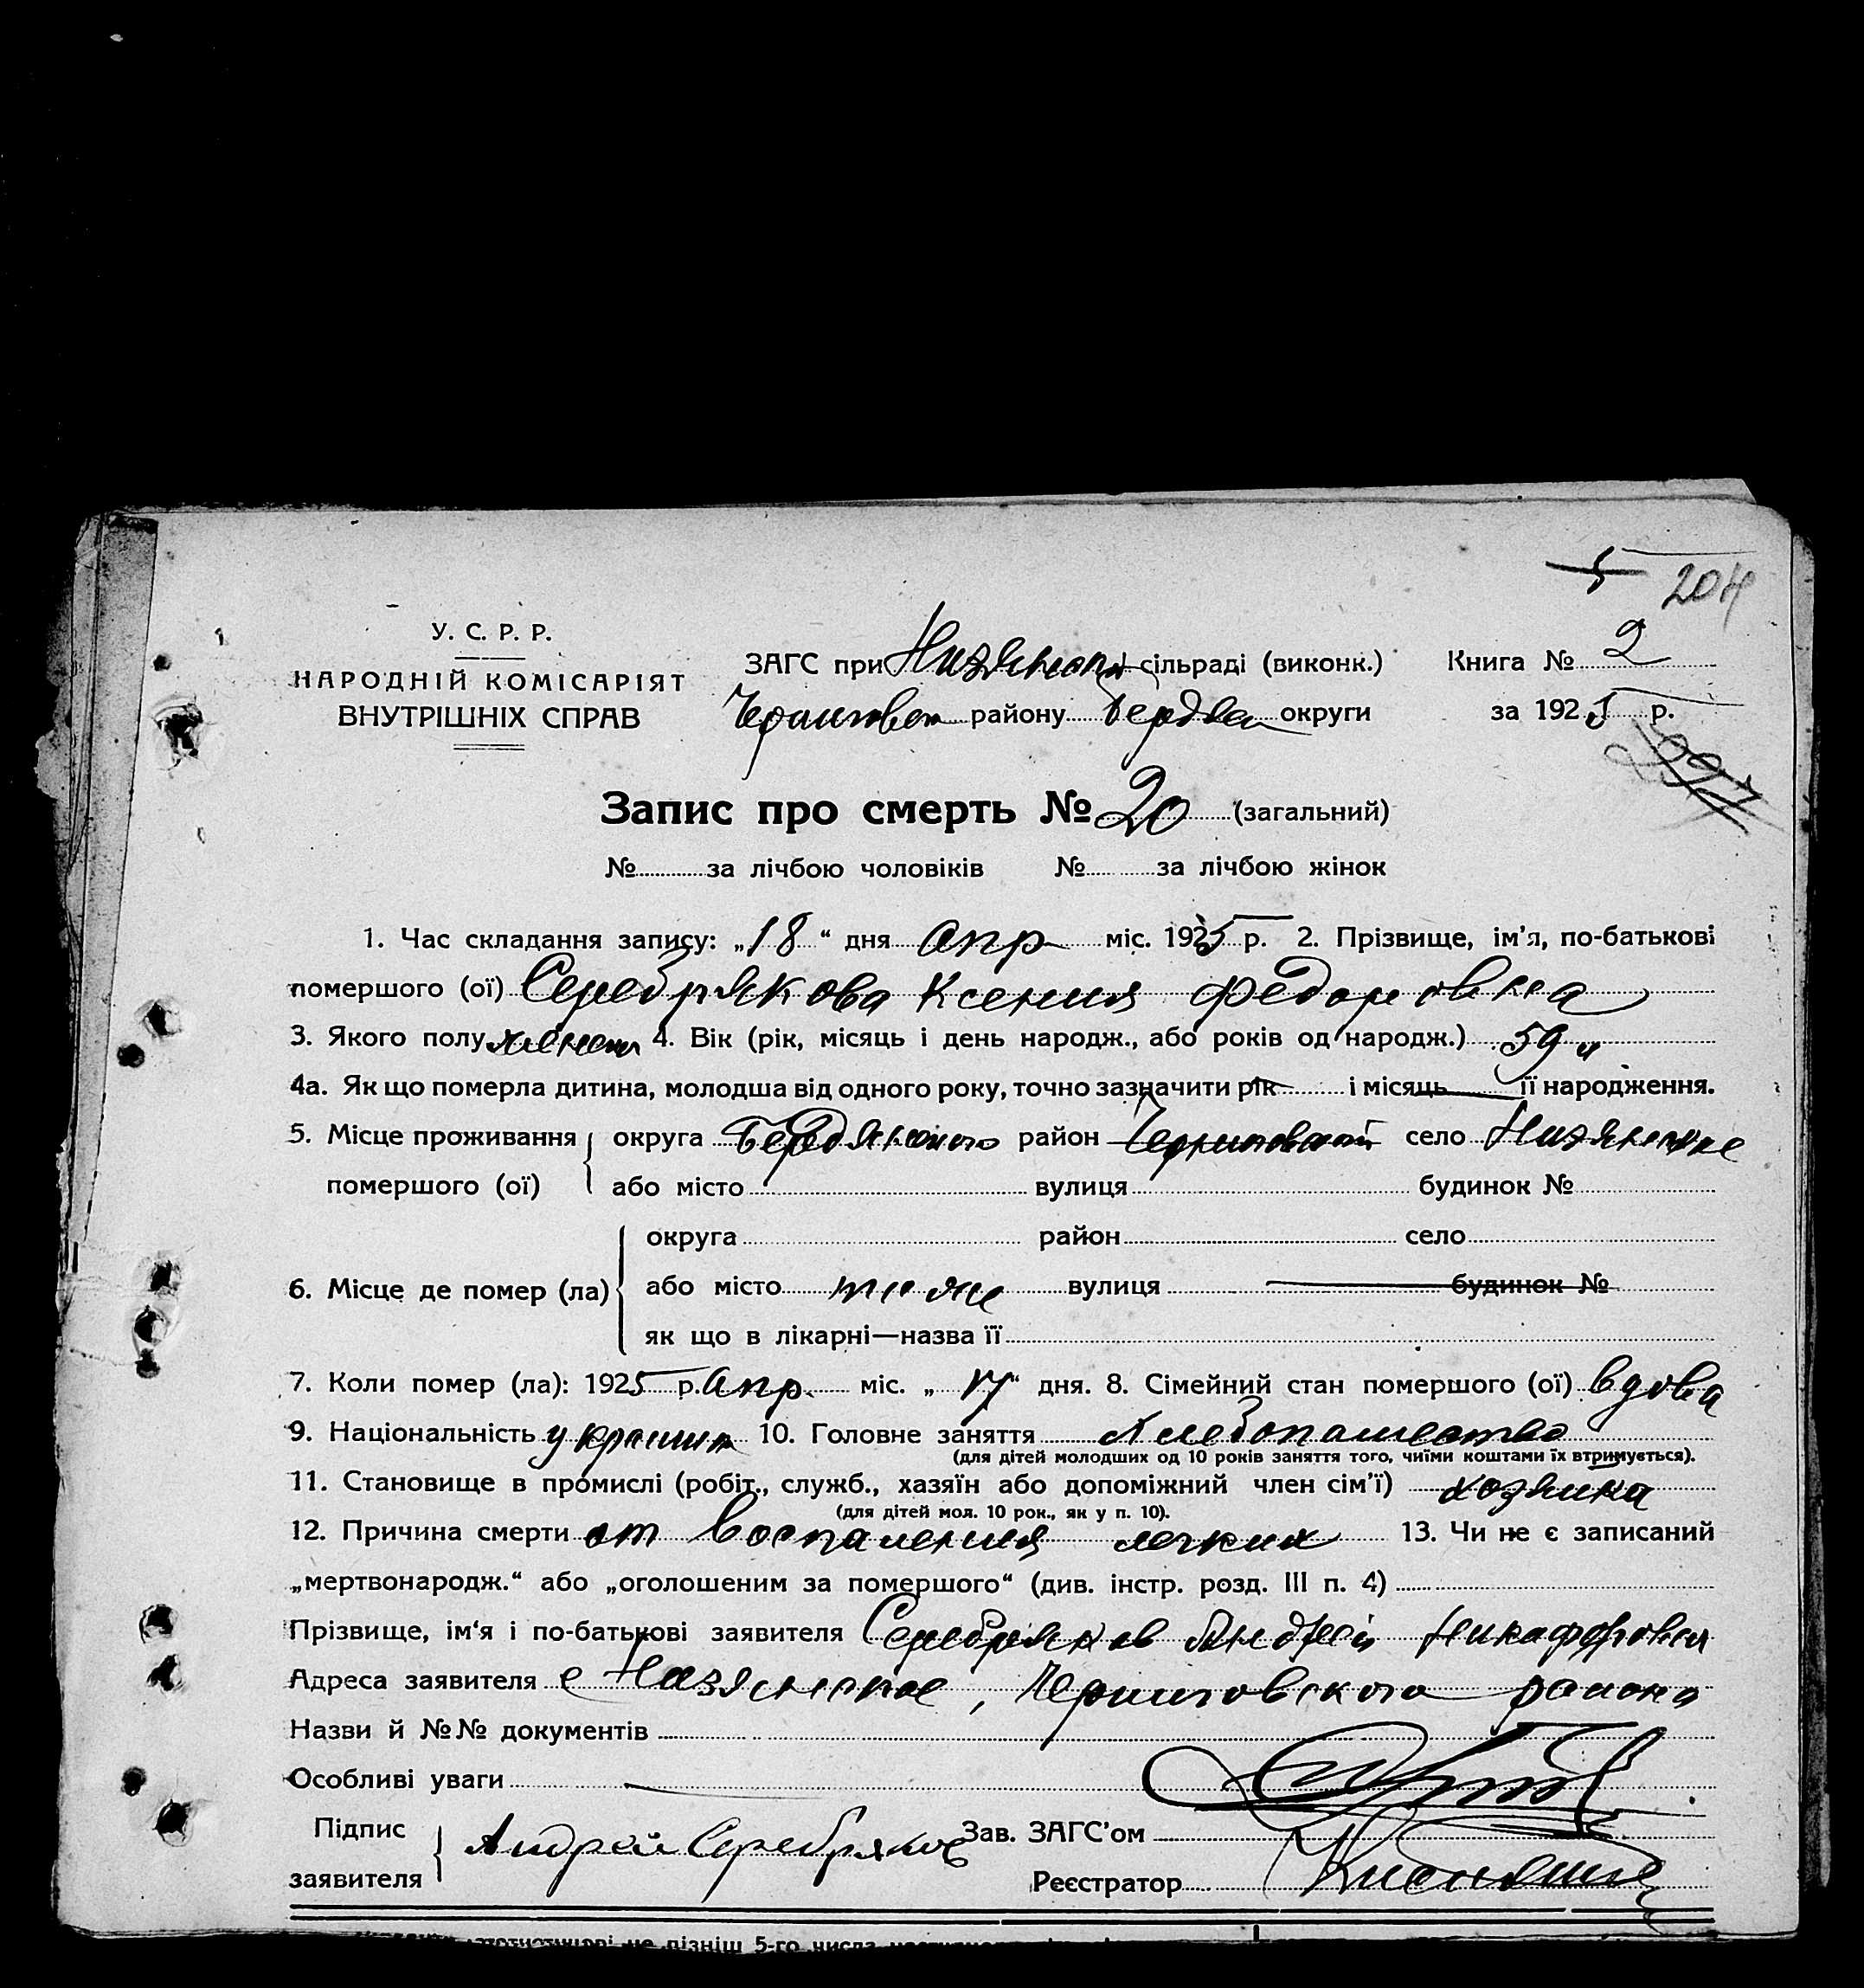 5
204
У. С. Р. Р.
НАРОДНІЙ КОМІСАРІЯТ
ВНУТРІШНІХ СПРАВ
ЗАГС при сільраді (виконк.) Книга № 2
району округи за 1925 р.
Запис про смерть № 20 (загальний)
№ за лічбою чоловіків № за лічбою жінок
1. Час складання запису: „18“ дня апр міс. 1925 р. 2. Прізвище, ім’я, по-батькові
помершого (ої) Серебрякова Ксения Федоровна
3. Якого полу женск 4. Вік (рік, місяць і день народж., або років од народж.) 59 л
4а. Як що померла дитина, молодша від одного року, точно зазначити рік і місяць її народження.
5. Місце проживання помершого (ої) округа Бердянского район Черниговский село Низянское
або місто вулиця будинок №
округа район село
6. Місце де помер (ла) або місто вулиця будинок №
як що в лікарні—назва її
7. Коли помер (ла): 1925 р. апр. міс. „17“ дня. 8. Сімейний стан помершого (ої) вдова
9. Національність украинк 10. Головне заняття хлебопашество
(для дітей молодших од 10 років заняття того, чиїми коштами їх втримується).
11. Становище в промислі (робіт., служб., хазяїн або допоміжний член сім’ї) хозяйка
(для дітей мол. 10 рок., як у п. 10).
12. Причина смерти от воспаления легких 13. Чи не є записаний
„мертвонародж.“ або „оголошеним за помершого“ (див. інстр. розд. III п. 4)
Прізвище, ім’я і по-батькові заявителя Серебряков Андрей
Адреса заявителя с Низянское, Черниговского района
Назви й №№ документів
Особливі уваги
Підпис заявителя Андрей Серебряков Зав. ЗАГС’ом
Реєстратор
не пізніш 5-го числа